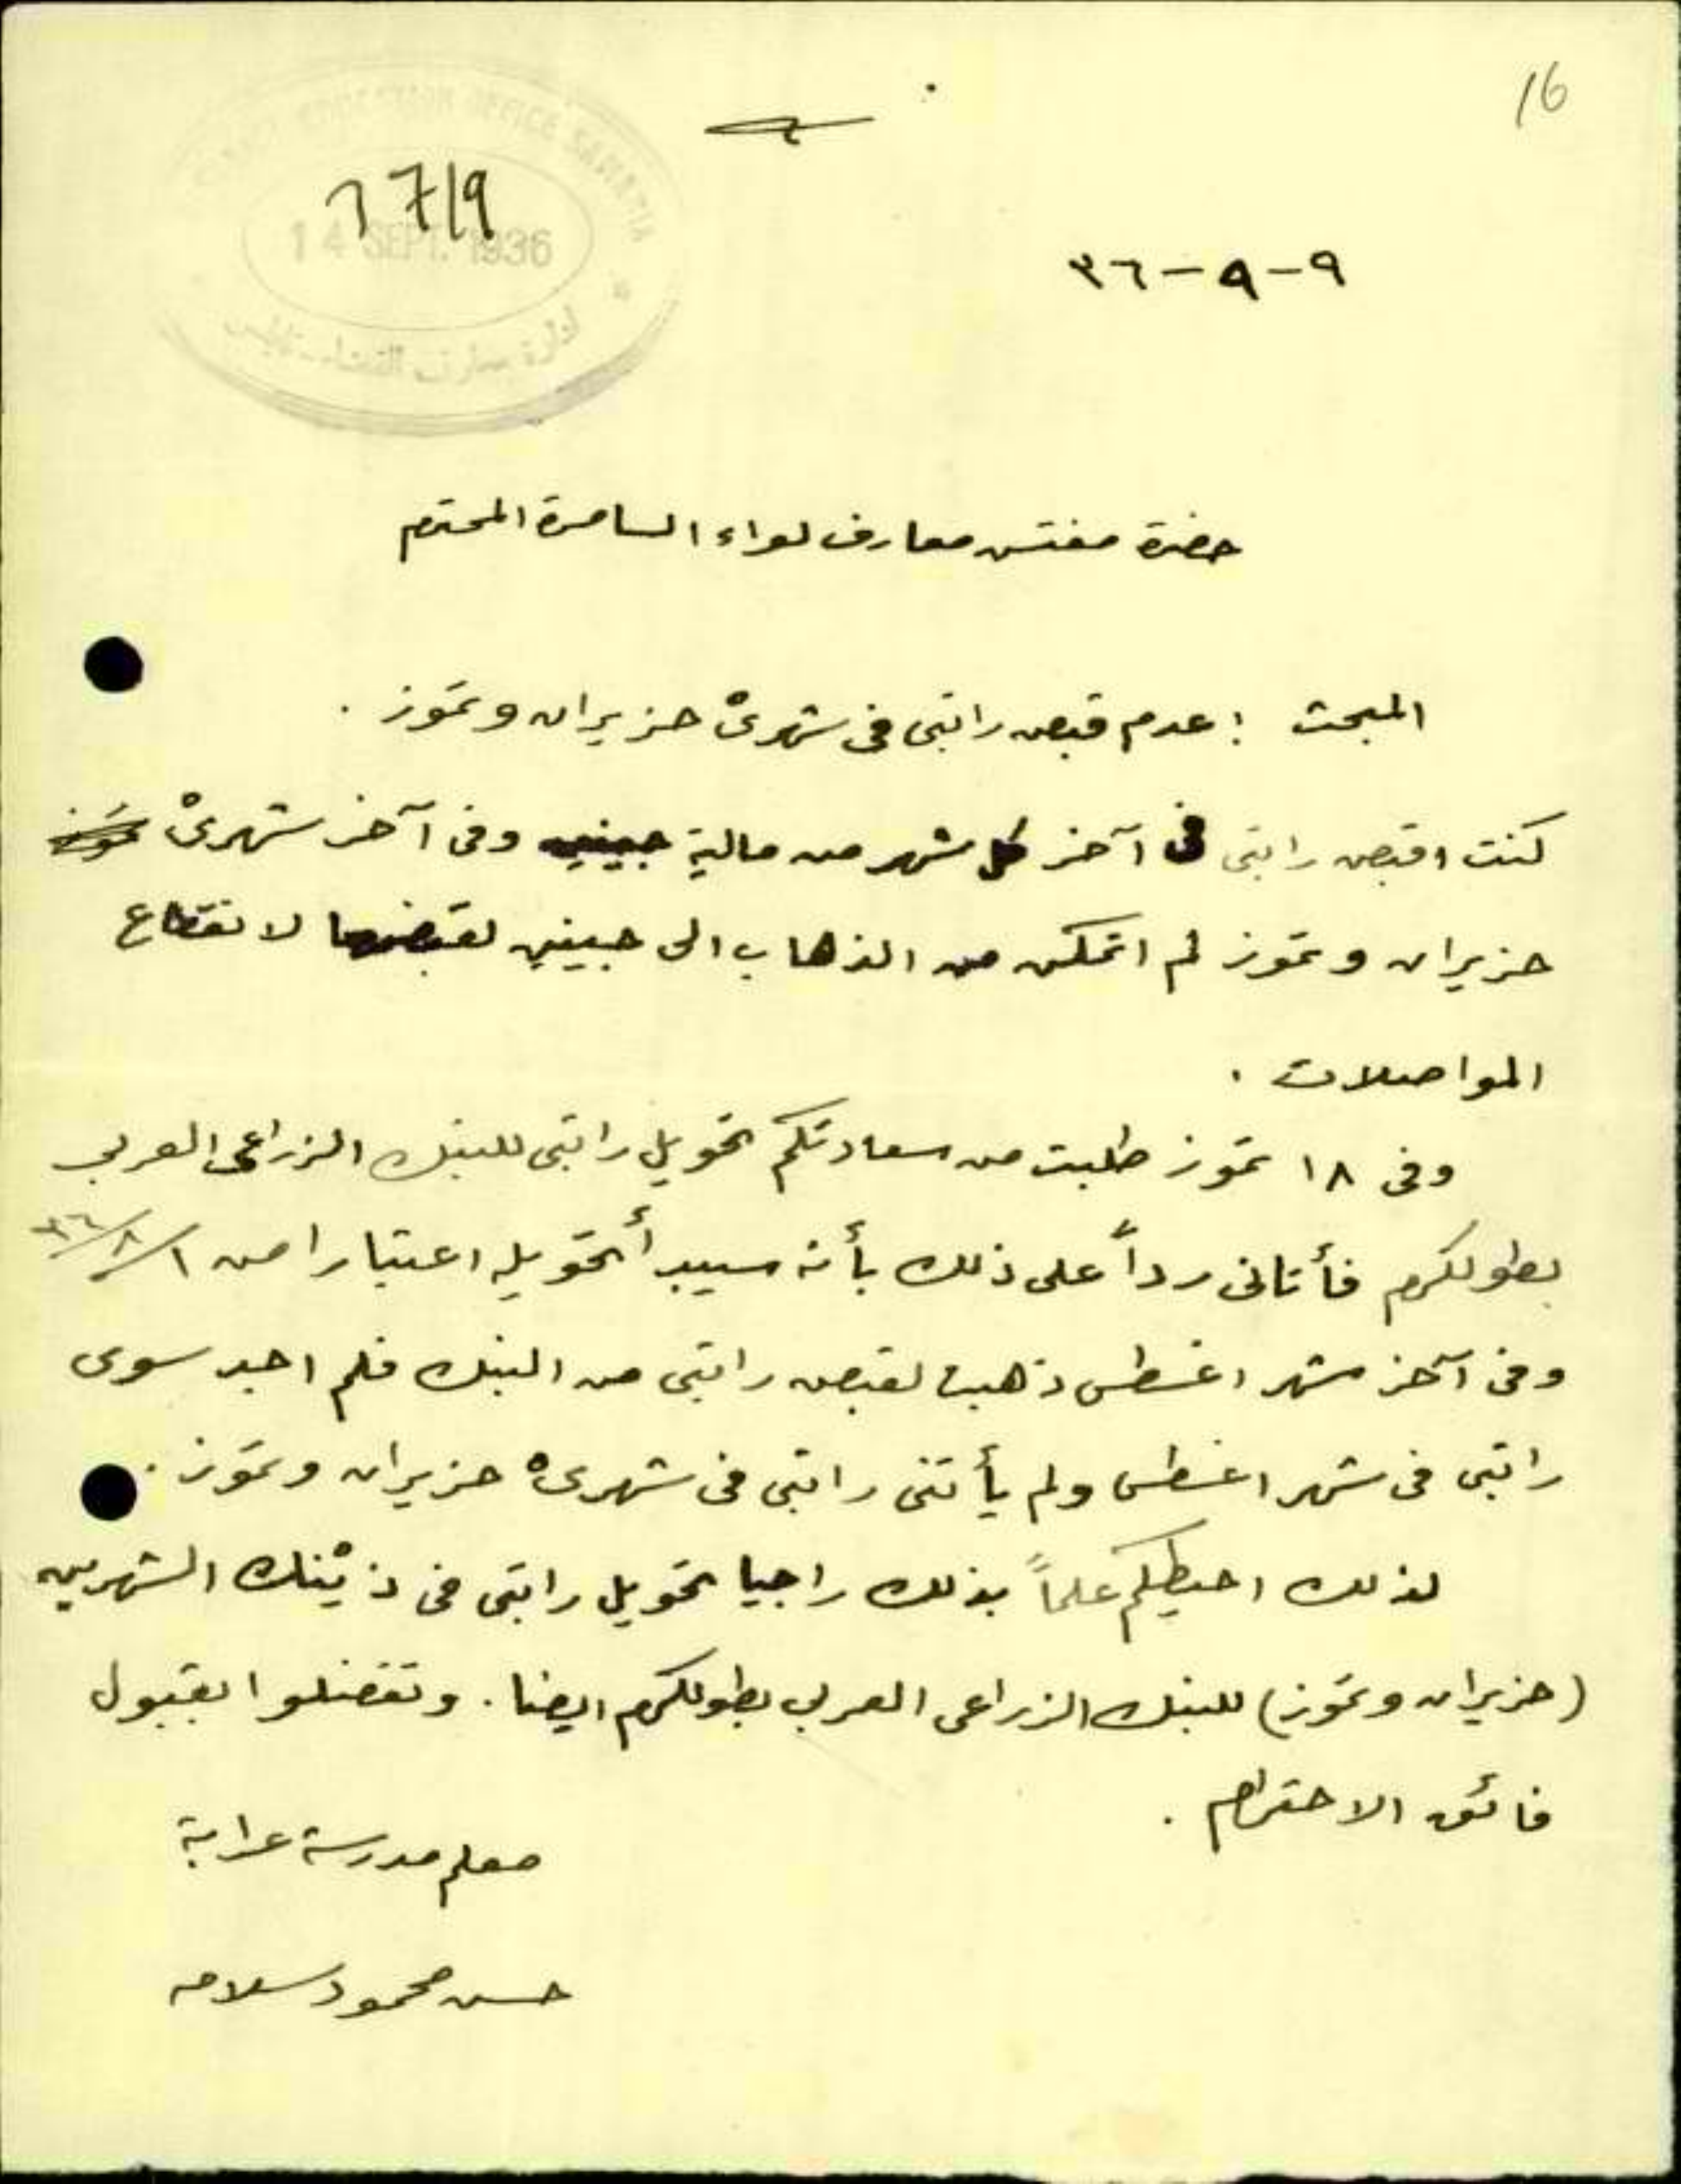 16
1719
14 SEPT. 1936
ادارة معارف القضاء نابلس
٩-٩-٣٦
حضرة مفتش معارف لواء السامرة المحترم
المبحث : عدم قبض راتبي في شهريْ حزيران وتموز .
كنت اقبض راتبي في آخر كل شهر من مالية جينين وفي آخر شهريْ تموز
حزيران وتموز لم اتمكن من الذهاب الى جينين لقبضهما لانقطاع
المواصلات .
وفي ١٨ تموز طلبت من سعادتكم تحويل راتبي للبنك الزراعي العربي
بطولكرم فأتاني رداً على ذلك بأنه سيبدأ تحويله اعتبارا من ١/٨/٣٦
وفي آخر شهر اغسطس ذهبت لقبض راتبي من البنك فلم اجد سوى
راتبي في شهر اغسطس ولم يأتني راتبي في شهريْ حزيران وتموز .
لذلك احيطكم علماً بذلك راجيا تحويل راتبي في ذيْنك الشهرين
(حزيران وتموز) للبنك الزراعي العربي بطولكرم ايضا . وتفضلوا بقبول
فائق الاحترام .
معلم مدرسة عرابة
حسن محمود سلامه